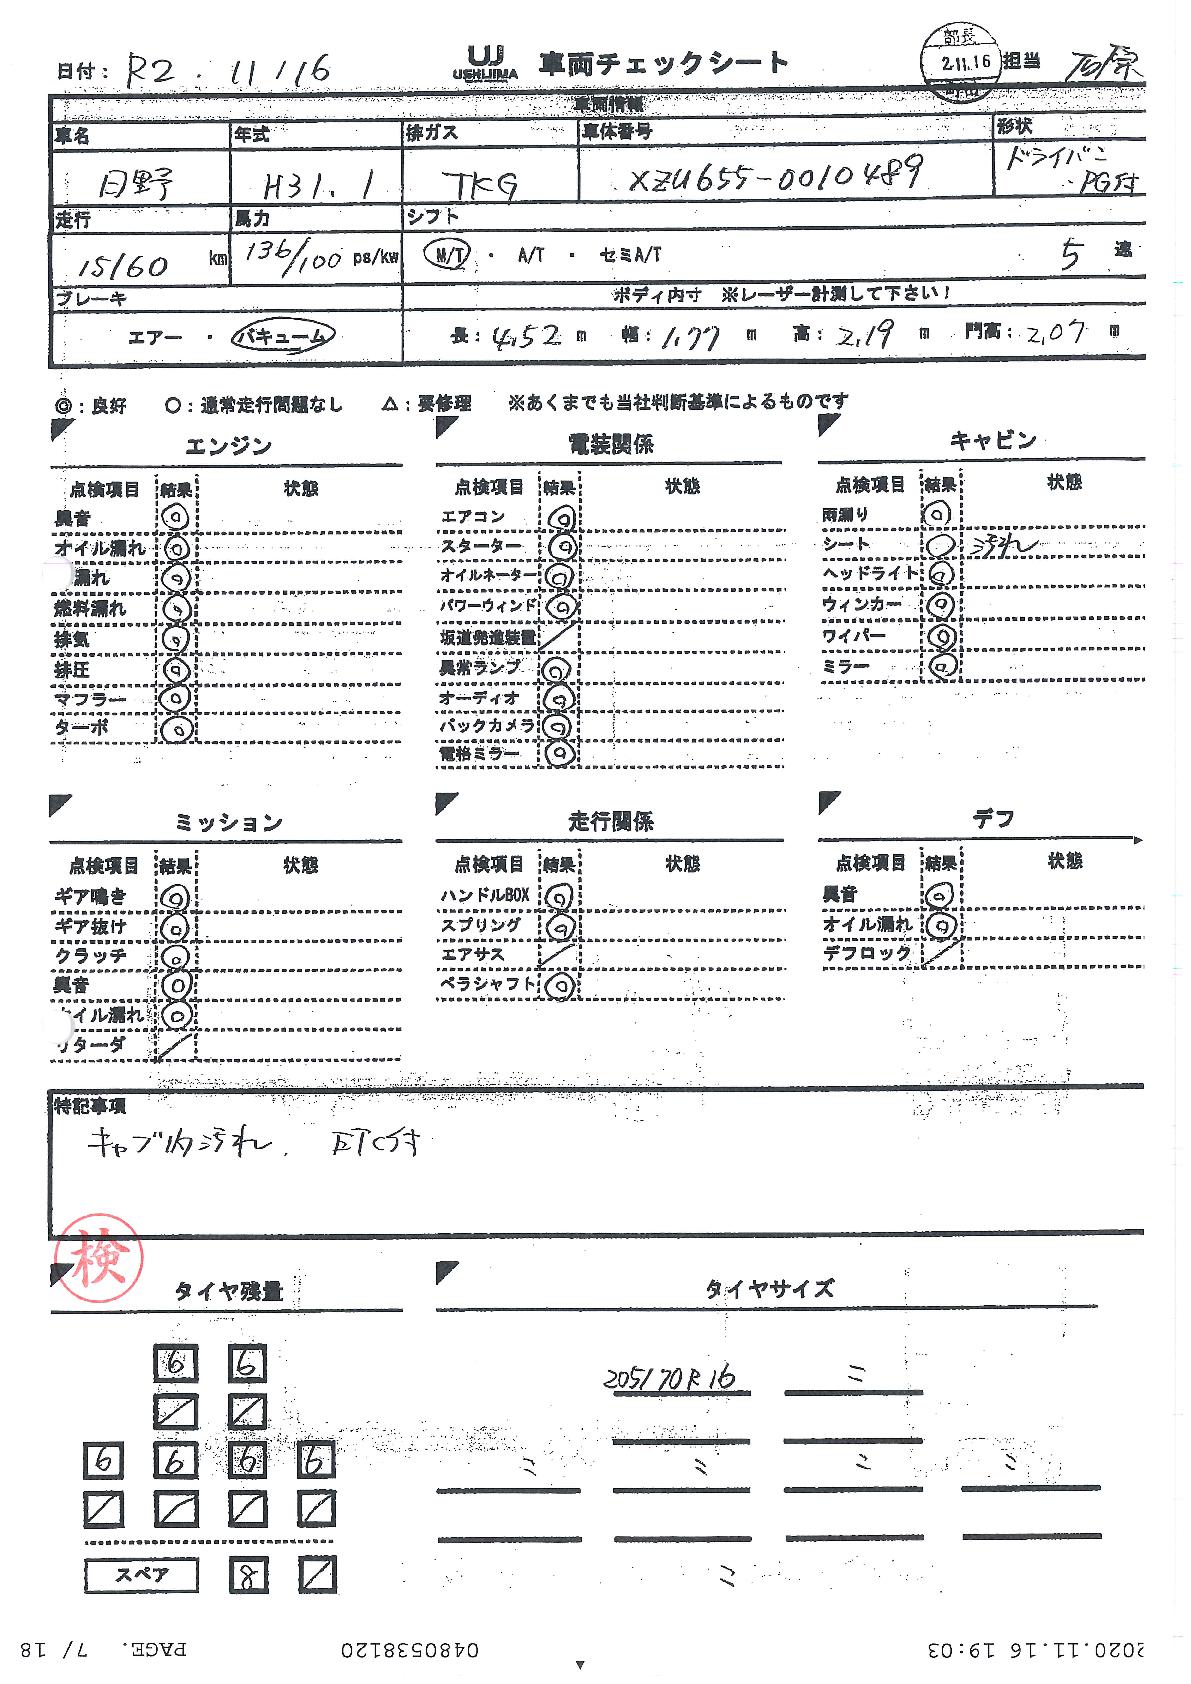 日付: R2.11/16 UJ USHIJIMA 車両チェックシート 部長 2.11.16 担当
車両情報
車名 年式 排ガス 車体番号 形状
日野 H31.1 TKG XZU655-0010489 ドライバン・PG付
走行 馬力 シフト
15160 km 136/100 ps/kw M/T ・ A/T ・ セミA/T 5 速
ブレーキ ボディ内寸 ※レーザー計測して下さい!
エアー ・ バキューム 長: 4.52 m 幅: 1.77 m 高: 2.19 m 門高: 2.07 m
◎:良好 ○:通常走行問題なし △:要修理 ※あくまでも当社判断基準によるものです
エンジン
点検項目 結果 状態
異音 ◎
オイル漏れ ◎
漏れ ◎
燃料漏れ ◎
排気 ◎
排圧 ◎
マフラー ◎
ターボ ◎
電装関係
点検項目 結果 状態
エアコン ◎
スターター ◎
オイルネーター ◎
パワーウィンド ◎
坂道発進装置 /
異常ランプ ◎
オーディオ ◎
バックカメラ ◎
電格ミラー ◎
キャビン
点検項目 結果 状態
雨漏り ◎
シート ○ 汚れ
ヘッドライト ◎
ウィンカー ◎
ワイパー ◎
ミラー ◎
ミッション
点検項目 結果 状態
ギア鳴き ◎
ギア抜け ◎
クラッチ ◎
異音 ◎
オイル漏れ ◎
リターダ /
走行関係
点検項目 結果 状態
ハンドルBOX ◎
スプリング ◎
エアサス /
ペラシャフト ◎
デフ
点検項目 結果 状態
異音 ◎
オイル漏れ ◎
デフロック /
特記事項
キャブ内汚れ、ETC付
検
タイヤ残量
6 6
/ /
6 6 6 6
/ / / /
スペア 8 /
タイヤサイズ
205/70R16 ミ
ミ ミ ミ ミ
ミ
2020.11.16 19:03 0480538120 PAGE. 7/ 18